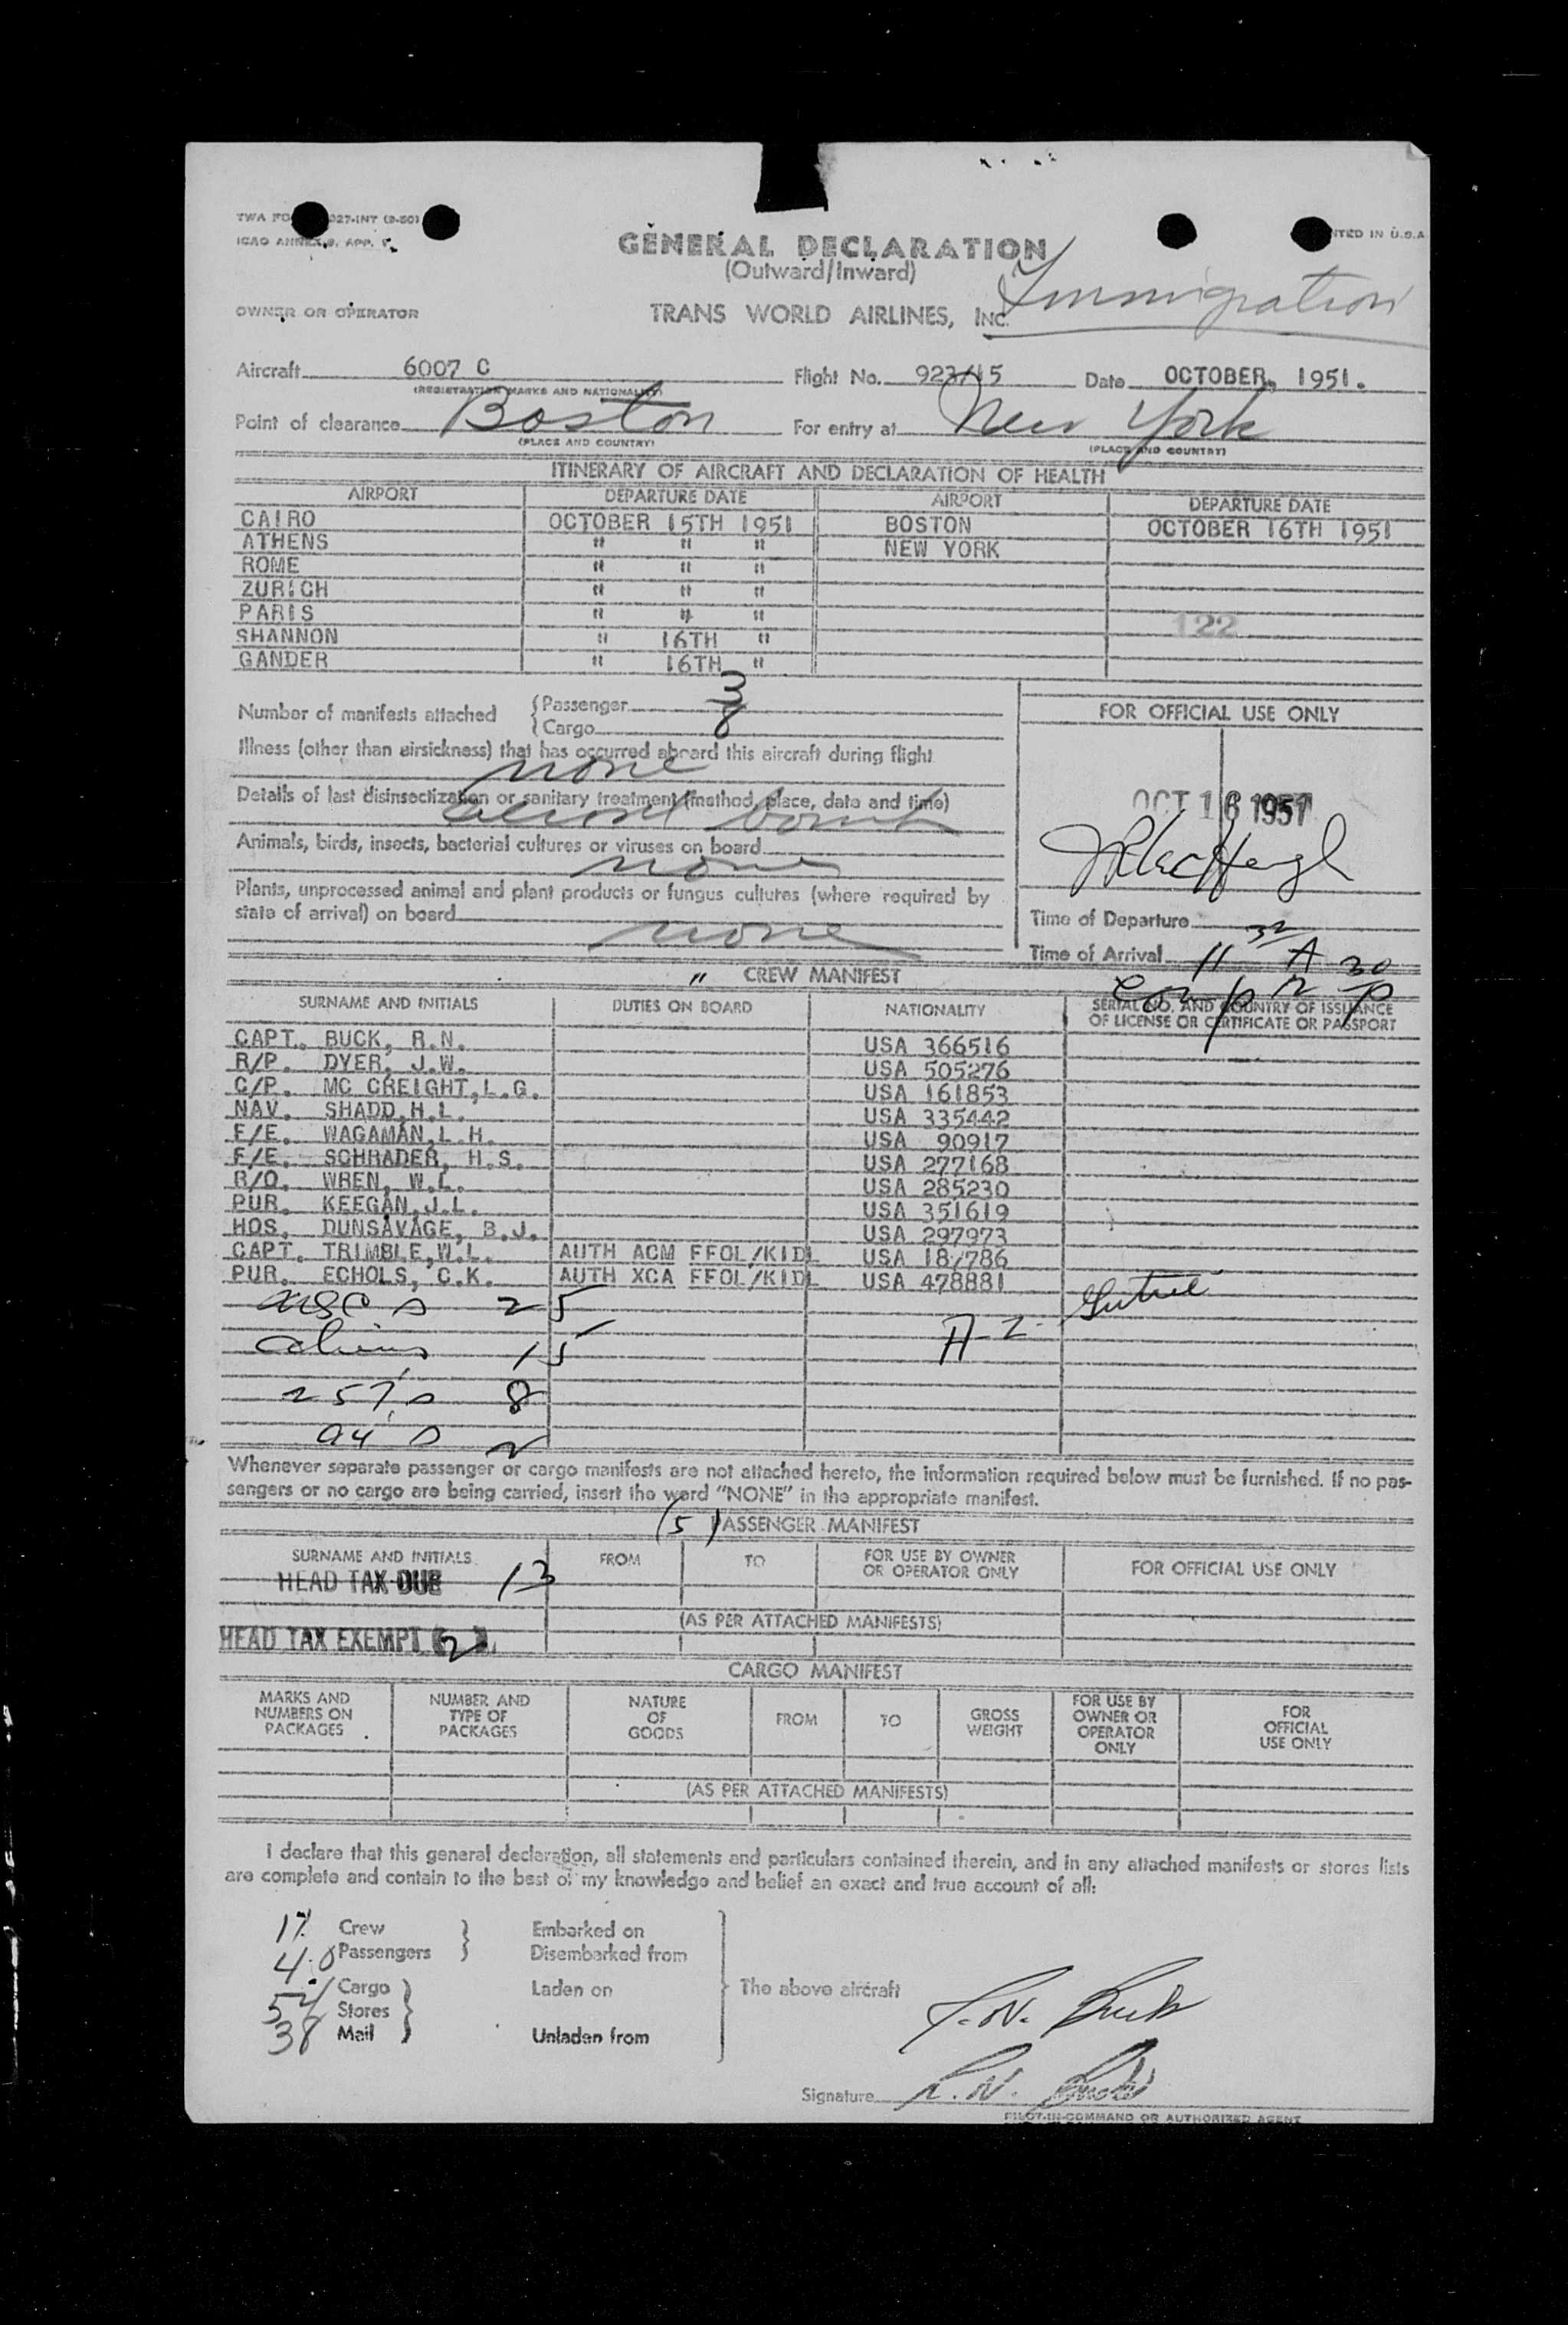 TWA FO 027-INT (9-50)
ICAO ANNEX 9, APP. 1
NTED IN U.S.A
GENERAL DECLARATION
(Outward/Inward)
Immigration
OWNER OR OPERATOR TRANS WORLD AIRLINES, INC.
Aircraft 6007 C Flight No. 923/15 Date OCTOBER, 1951.
(REGISTRATION MARKS AND NATIONALITY)
Point of clearance Boston For entry at New York
(PLACE AND COUNTRY) (PLACE AND COUNTRY)
ITINERARY OF AIRCRAFT AND DECLARATION OF HEALTH
AIRPORT DEPARTURE DATE AIRPORT DEPARTURE DATE
CAIRO OCTOBER 15TH 1951 BOSTON OCTOBER 16TH 1951
ATHENS " " " NEW YORK
ROME " " "
ZURICH " " "
PARIS " " " 122
SHANNON " 16TH "
GANDER " 16TH "
Number of manifests attached { Passenger 3
{ Cargo 8
FOR OFFICIAL USE ONLY
Illness (other than airsickness) that has occurred aboard this aircraft during flight
none
Details of last disinsectization or sanitary treatment (method, place, date and time)
bomb
OCT 16 1951
Animals, birds, insects, bacterial cultures or viruses on board none
Plants, unprocessed animal and plant products or fungus cultures (where required by
state of arrival) on board none
Time of Departure
Time of Arrival 11 32 A
Comp 12 30 P
" CREW MANIFEST
SURNAME AND INITIALS DUTIES ON BOARD NATIONALITY SERIAL NO. AND COUNTRY OF ISSUANCE
OF LICENSE OR CERTIFICATE OR PASSPORT
CAPT. BUCK, R.N. USA 366516
R/P. DYER, J.W. USA 505276
C/P. MC CREIGHT,L.G. USA 161853
NAV. SHADD,H.L. USA 335442
F/E. WAGAMAN,L.H. USA 90917
F/E. SCHRADER, H.S. USA 277168
R/O. WREN, W.L. USA 285230
PUR. KEEGAN,J.L. USA 351619
HOS. DUNSAVAGE, B.J. USA 297973
CAPT. TRIMBLE,W.L. AUTH ACM FFOL/KIDL USA 187786
PUR. ECHOLS, C.K. AUTH XCA FFOL/KIDL USA 478881
USC s 25
aliens 15
A-2
257's 8
a4 s 2
Whenever separate passenger or cargo manifests are not attached hereto, the information required below must be furnished. If no pas-
sengers or no cargo are being carried, insert the word "NONE" in the appropriate manifest.
(5) PASSENGER MANIFEST
SURNAME AND INITIALS FROM TO FOR USE BY OWNER
OR OPERATOR ONLY FOR OFFICIAL USE ONLY
HEAD TAX DUE 13
(AS PER ATTACHED MANIFESTS)
HEAD TAX EXEMPT (2)
CARGO MANIFEST
MARKS AND
NUMBERS ON
PACKAGES
NUMBER AND
TYPE OF
PACKAGES
NATURE
OF
GOODS
FROM
TO
GROSS
WEIGHT
FOR USE BY
OWNER OR
OPERATOR
ONLY
FOR
OFFICIAL
USE ONLY
(AS PER ATTACHED MANIFESTS)
I declare that this general declaration, all statements and particulars contained therein, and in any attached manifests or stores lists
are complete and contain to the best of my knowledge and belief an exact and true account of all:
11 Crew } Embarked on
40 Passengers } Disembarked from
Cargo } Laden on The above aircraft
Stores
38 Mail } Unladen from
R.N. Buck
Signature R.N. Buck
PILOT-IN-COMMAND OR AUTHORIZED AGENT